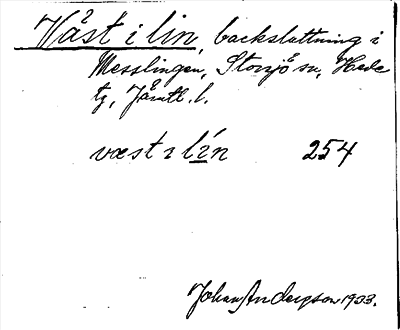 Våst i lin, backsluttning i
Messlingen, Storsjö sn, Hede
tg, Jämtl. l.
væst ɪ lín 254
Johan Anderson 1933.